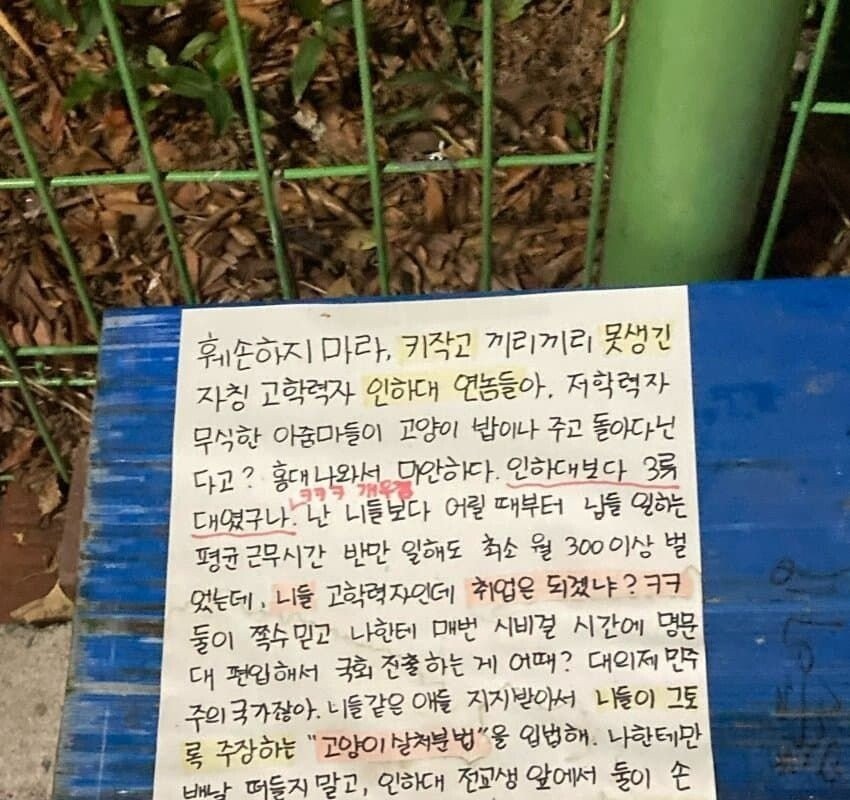 훼손하지 마라, 키작고 끼리끼리 못생긴
자칭 고학력자 인하대 연놈들아. 저학력자
무식한 아줌마들이 고양이 밥이나 주고 돌아다닌
다고? 홍대 나와서 미안하다. 인하대보다 3류
ㅋㅋㅋ 개웃겸
대였구나. 난 니들보다 어릴 때부터 님들 일하는
평균 근무시간 반만 일해도 최소 월 300이상 벌
었는데, 니들 고학력자인데 취업은 되겠냐? ㅋㅋ
둘이 쪽수 믿고 나한테 매번 시비걸 시간에 명문
대 편입해서 국회 진출하는 게 어때? 대의제 민주
주의 국가잖아. 니들같은 애들 지지받아서 니들이 그토
록 주장하는 "고양이 살처분법"을 입법해. 나한테만
맨날 떠들지 말고, 인하대 전교생 앞에서 둘이 손